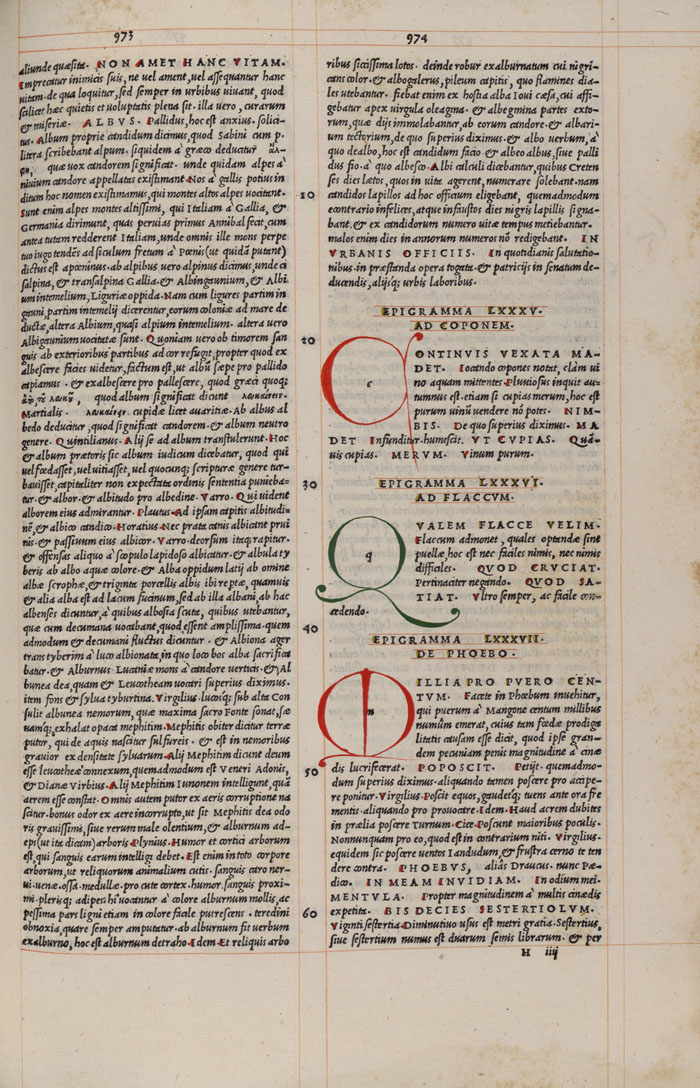 973
aliunde quæsita. NON AMET HANC VITAM.
Imprecatur inimicis suis, ne uel ament, uel assequantur hanc
uitam. de qua loquitur, sed semper in urbibus uiuant, quod
scilicet hæc quietis et uoluptatis plena sit. illa uero, curarum
& miseriæ. ALBVS. Pallidus, hoc est anxius. solici-
tus. Album proprie candidum dicimus, quod Sabini cum p.
litera scribebant alpum. siquidem a græco deducatur
quæ uox candorem significat. unde quidam alpes à
niuium candore appellatas existimant. Nos à gallis potius in
ditum hoc nomen existimamus, qui montes altos alpes uocitent.
Sunt enim alpes montes altissimi, qui Italiam à Gallia, &
Germania dirimunt, quas peruias primus Annibal fecit, cum
antea tutam redderent Italiam, unde omnis ille mons perpe
tuo iugo tendēs ad siculum fretum à Pœnis (ut quidā putent)
dictus est apœninus. ab alpibus uero alpinus dicimus, unde ci
salpina, & transalpina Gallia. & Albingaunium, & Albi
um intemelium, Liguriæ oppida. Nam cum ligures partim in
gauni, partim intemelij dicerentur, eorum coloniæ ad mare de
ductæ, altera Albium, quasi alpium intemelium. altera uero
Albigaunium uocitatæ sunt. Quoniam uero ob timorem san
guis ab exterioribus partibus ad cor refugit, propter quod ex
albescere facies uidetur, factum est, ut albū sæpe pro pallido
capiamus. & exalbescere pro pallescere, quod græci quoq;
quod album significat dicunt
Martialis. cupidæ licet auaritiæ. Ab albus al
bedo deducitur, quod significat candorem. & album neutro
genere. Quintilianus. Alij se ad album transtulerunt. Hoc
& album prætoris sic album iudicum dicebatur, quod qui
uel fœdasset, uel uitiasset, uel quocunq; scripturæ genere tur-
bauisset, capitaliter non expectata ordinis sententia puniebā-
tur. & albor. & albitudo pro albedine. Varro. Qui uident
alborem eius admirantur. Plautus. Ad ipsam capitis albitudi-
nē, & albico candico. Horatius. Nec prata canis albicant prui
nis. & passiuum eius albicor. Varro. deorsum itaq; rapitur.
& offensas aliquo à scopulo lapidoso albicatur. & albula ty
beris ab albo aquæ colore. & Alba oppidum latij ab omine
albæ scrophæ, & triginta porcellis albis ibi reptæ, quamuis
& alia alba est ad lacum fucinum, sed ab illa albani, ab hac
albenses dicuntur, à quibus albosia scuta, quibus utebantur,
quæ cum decumana uocabant, quod essent amplissima. quem
admodum & decumani fluctus dicuntur. & Albiona ager
trans tyberim a luco albionata, in quo loco bos alba sacrificā
batur. & Alburnus Lucaniæ mons a candore uerticis. & Al
bunea dea, quam & Leucotheam uocari superius diximus.
item fons & sylua tyburtina. Virgilius. lucosq; sub alta Con
sulit albunea nemorum, quæ maxima sacro Fonte sonat, sæ
uamq; exhalat opaca mephitim. Mephitis obiter dicitur terræ
putor, qui de aquis nascitur sulfureis. & est in nemoribus
grauior ex densitate syluarum. Alij Mephitim dicunt deum
esse leucotheæ connexum, quemadmodum est Veneri Adonis,
& Dianæ Virbius. Alij Mephitim Iunonem intelligunt, quā
aerem esse constat. Omnis autem putor ex aeris corruptione na
scitur. bonus odor ex aere incorrupto, ut sit Mephitis dea odo
ris grauissimi, siue rerum male olentium, & alburnum ad-
eps (ut ita dicam) arboris. Plynius. Humor et cortici arborum
est, qui sanguis earum intelligi debet. Est enim in toto corpore
arborum, ut reliquorum animalium cutis. sanguis. caro ner-
ui. uenæ. ossa. medullæ. pro cute cortex. humor. sanguis proxi-
mi. plerisq; adipes hi uocantur à colore alburnum mollis, ac
pessima pars ligni etiam in colore facile putrescens. teredini
obnoxia, quare semper amputatur. ab alburnum fit uerbum
exalburno, hoc est alburnum detraho. Idem. Et reliquis arbo
10
20
30
40
50
60
974
ribus siccissima lotos. deinde robur exalburnatum cui nigri-
cans color. & albogalerus, pileum capitis, quo flamines dia-
les utebantur. fiebat enim ex hostia alba Ioui cæsa, cui affi-
gebatur apex uirgula oleagna. & albegmina partes exto-
rum, quæ dijs immolabantur, ab eorum candore. & albari-
um tectorium, de quo superius diximus. & albo uerbum, à
quo dealbo, hoc est candidum facio. & albeo albus, siue palli
dus fio. à quo albesco. Albi calculi dicebantur, quibus Creten
ses dies lætos, quos in uita agerent, numerare solebant. nam
candidos lapillos ad hoc officium eligebant, quemadmodum
econtrario infelices, atque infaustos dies nigris lapillis signa-
bant. & ex candidorum numero uitæ tempus metiebantur.
malos enim dies in annorum numeros nō redigebant. IN
VRBANIS OFFICIIS. In quotidianis salutatio-
nibus. in præstanda opera togata. & patricijs in senatum de-
ducendis, alijsq; urbis laboribus.
EPIGRAMMA LXXXV.
AD COPONEM.
CONTINVIS VEXATA MA-
DET. Iocando copones notat, clam ui
no aquam mittentes. Pluuiosus inquit au-
tumnus est. etiam si cupias merum, hoc est
purum uinū uendere nō potes. NIM-
BIS. De quo superius diximus. MA
DET Infunditur. humescit. VT CVPIAS. Quā-
uis cupias. MERVM. Vinum purum.
EPIGRAMMA LXXXVI.
AD FLACCVM.
QVALEM FLACCE VELIM.
Flaccum admonet, quales optandæ sint
puellæ, hoc est nec faciles nimis, nec nimis
difficiles. QVOD CRVCIAT.
Pertinaciter negando. QVOD SA-
TIAT. Vltro semper, ac facile con-
cedendo.
EPIGRAMMA LXXXVII.
DE PHOEBO.
MILLIA PRO PVERO CEN-
TVM. Facete in Phœbum inuehitur,
qui puerum à Mangone centum millibus
numūm emerat, cuius tam fœdæ prodiga
litatis causam esse dicit, quod ipse gran-
dem pecuniam penis magnitudine à cinæ
dis lucrifecerat. POPOSCIT. Petijt. quemadmo-
dum superius diximus. aliquando tamen poscere pro accipe-
re ponitur. Virgilius. Poscit equos, gaudetq; tuens ante ora fre
mentis. aliquando pro prouocare. Idem. Haud acrem dubites
in prælia poscere Turnum. Cice. Poscunt maioribus poculis.
Nonnunquam pro eo, quod est in contrarium niti. Virgilius.
equidem sic poscere uentos Iandudum, & frustra cerno te ten
dere contra. PHOEBVS, aliâs Draucus. nunc Pæ-
dico. IN MEAM INVIDIAM. In odium mei.
MENTVLA. Propter magnitudinem à multis cinædis
expetita. BIS DECIES SESTERTIOLVM.
Viginti sestertia. Diminutiuo usus est metri gratia. Sestertius,
siue sestertium numus est duarum semis librarum. & per
H iiij